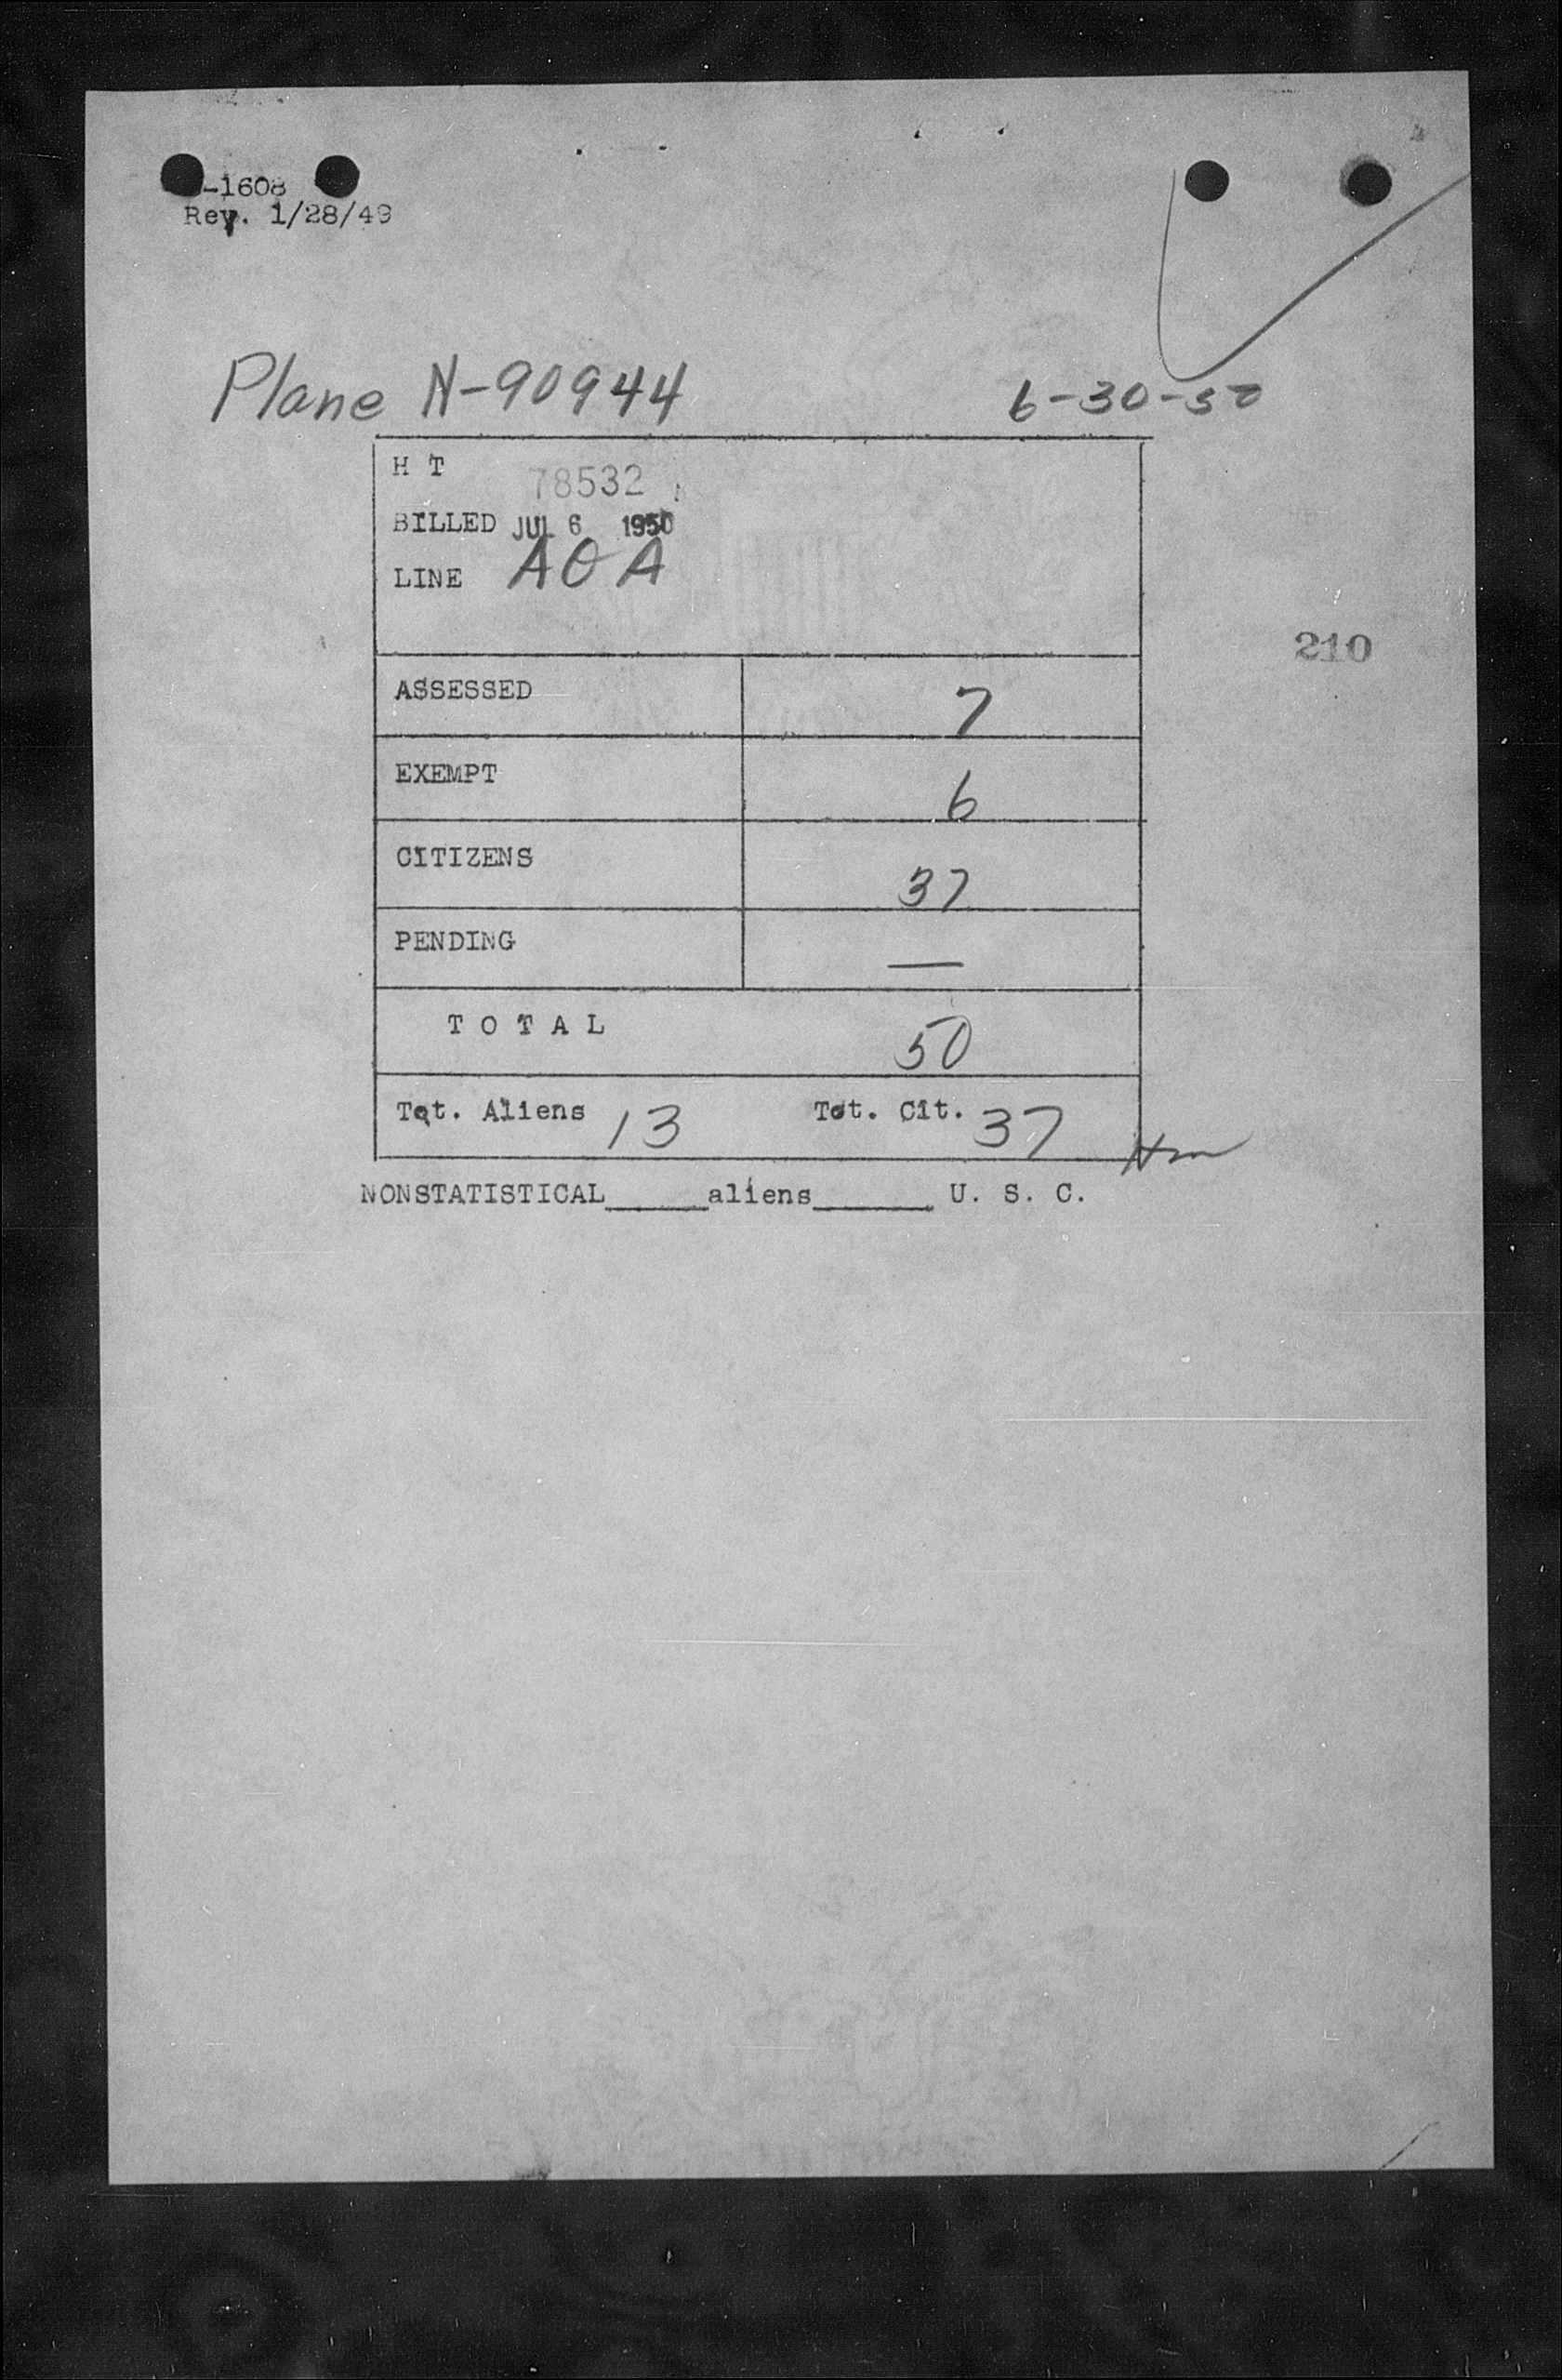 -1608
Rev. 1/28/49
Plane N-90944 6-30-50
H T 78532
BILLED JUL 6 1950
LINE AOA
210
ASSESSED 7
EXEMPT 6
CITIZENS 37
PENDING —
T O T A L 50
Tot. Aliens 13 Tot. Cit. 37
NONSTATISTICAL_____aliens______ U. S. C.